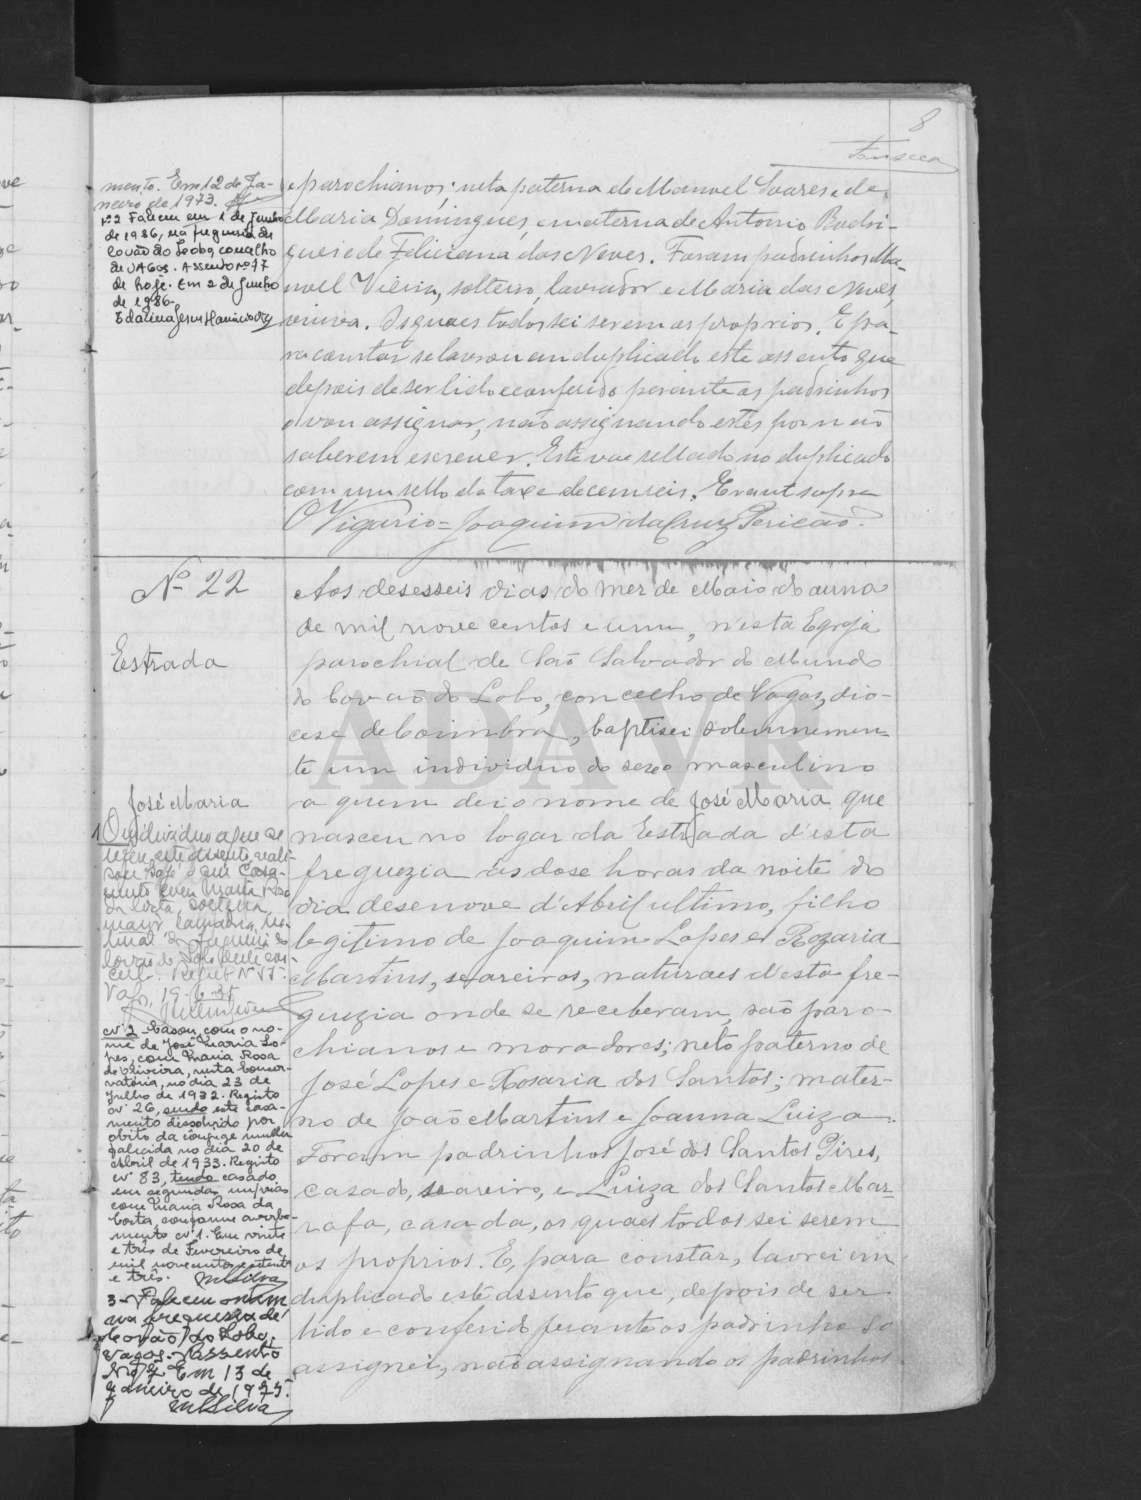 8
Fonseca
mento. Em 12 de Ja-
neiro de 1973.
Nº 2 Faleceu em 1 de Junho
de 1986, na freguesia de
Covão do Lobo, concelho
de VAGOS. Assento nº 17
de hoje. Em 2 de Junho
de 1986
e parochianos; neta paterna de Manoel Soares e de
Maria Domingues, e materna de Antonio Rodri-
gues e de Feliciana das Neves. Foram padrinhos Ma-
noel Vieira, solteiro, lavrador e Maria das Neves,
viuva. Os quaes todos sei serem os proprios. E pa-
ra constar se lavrou em duplicado este assento que
depois de ser lido e conferido perante os padrinhos
o vou assignar, não assignando estes por não
saberem escrever. Este vae sellado no duplicado
com um sello da taxa de cem reis. Era ut supra
O Vigario = Joaquim da Cruz Pericão.
Nº 22
Estrada
José Maria
1 O individuo a que se
refere este assento reali-
sou hoje o seu casa-
mento com Maria Rosa
da Costa, solteira,
maior, na-
tural da freguesia de
Covão do Lobo
Vag. 19-6-35
nº 2 - Casou, com o no-
me de José Maria Lo-
pes, com Maria Rosa
de Oliveira, nesta Conser-
vatória, no dia 23 de
Julho de 1932. Registo
nº 26, sendo este casa-
mento dissolvido por
obito da conjuge mulher
falecida no dia 20 de
Abril de 1933. Registo
nº 83, tendo casado
em segundas nupcias
com Maria Rosa da
Costa, conforme averba-
mento nº 1. Em vinte
e três de Fevereiro de
mil novecentos e setenta
e três. MSilva
3 - Faleceu ontem
na freguesia de
Covão do Lobo,
Vagos. Assento
Nº 2 Em 13 de
Janeiro de 1975.
MSilva
Aos desesseis dias do mez de Maio do anno
de mil nove centos e um, n'esta Egreja
parochial de São Salvador do Mundo
do Covão do Lobo, concelho de Vagos, dio-
cese de Coimbra, baptisei solemnemen-
te um individuo do sexo masculino
a quem dei o nome de José Maria que
nasceu no logar da Estrada d'esta
freguezia ás dose horas da noite do
dia desenove d'Abril ultimo, filho
legitimo de Joaquim Lopes e Rozaria
Martins, seareiros, naturaes d'esta fre-
guezia onde se receberam, são paro-
chianos e moradores; neto paterno de
José Lopes e Rosaria dos Santos; mater-
no de João Martins e Joanna Luiza.
Foram padrinhos José dos Santos Pires,
casado, seareiro, e Luiza dos Santos Mar-
rafa, casada, os quaes todos sei serem
os proprios. E, para constar, lavrei em
duplicado este assento que, depois de ser
lido e conferido perante os padrinhos só
assignei, não assignando os padrinhos
ADAVR